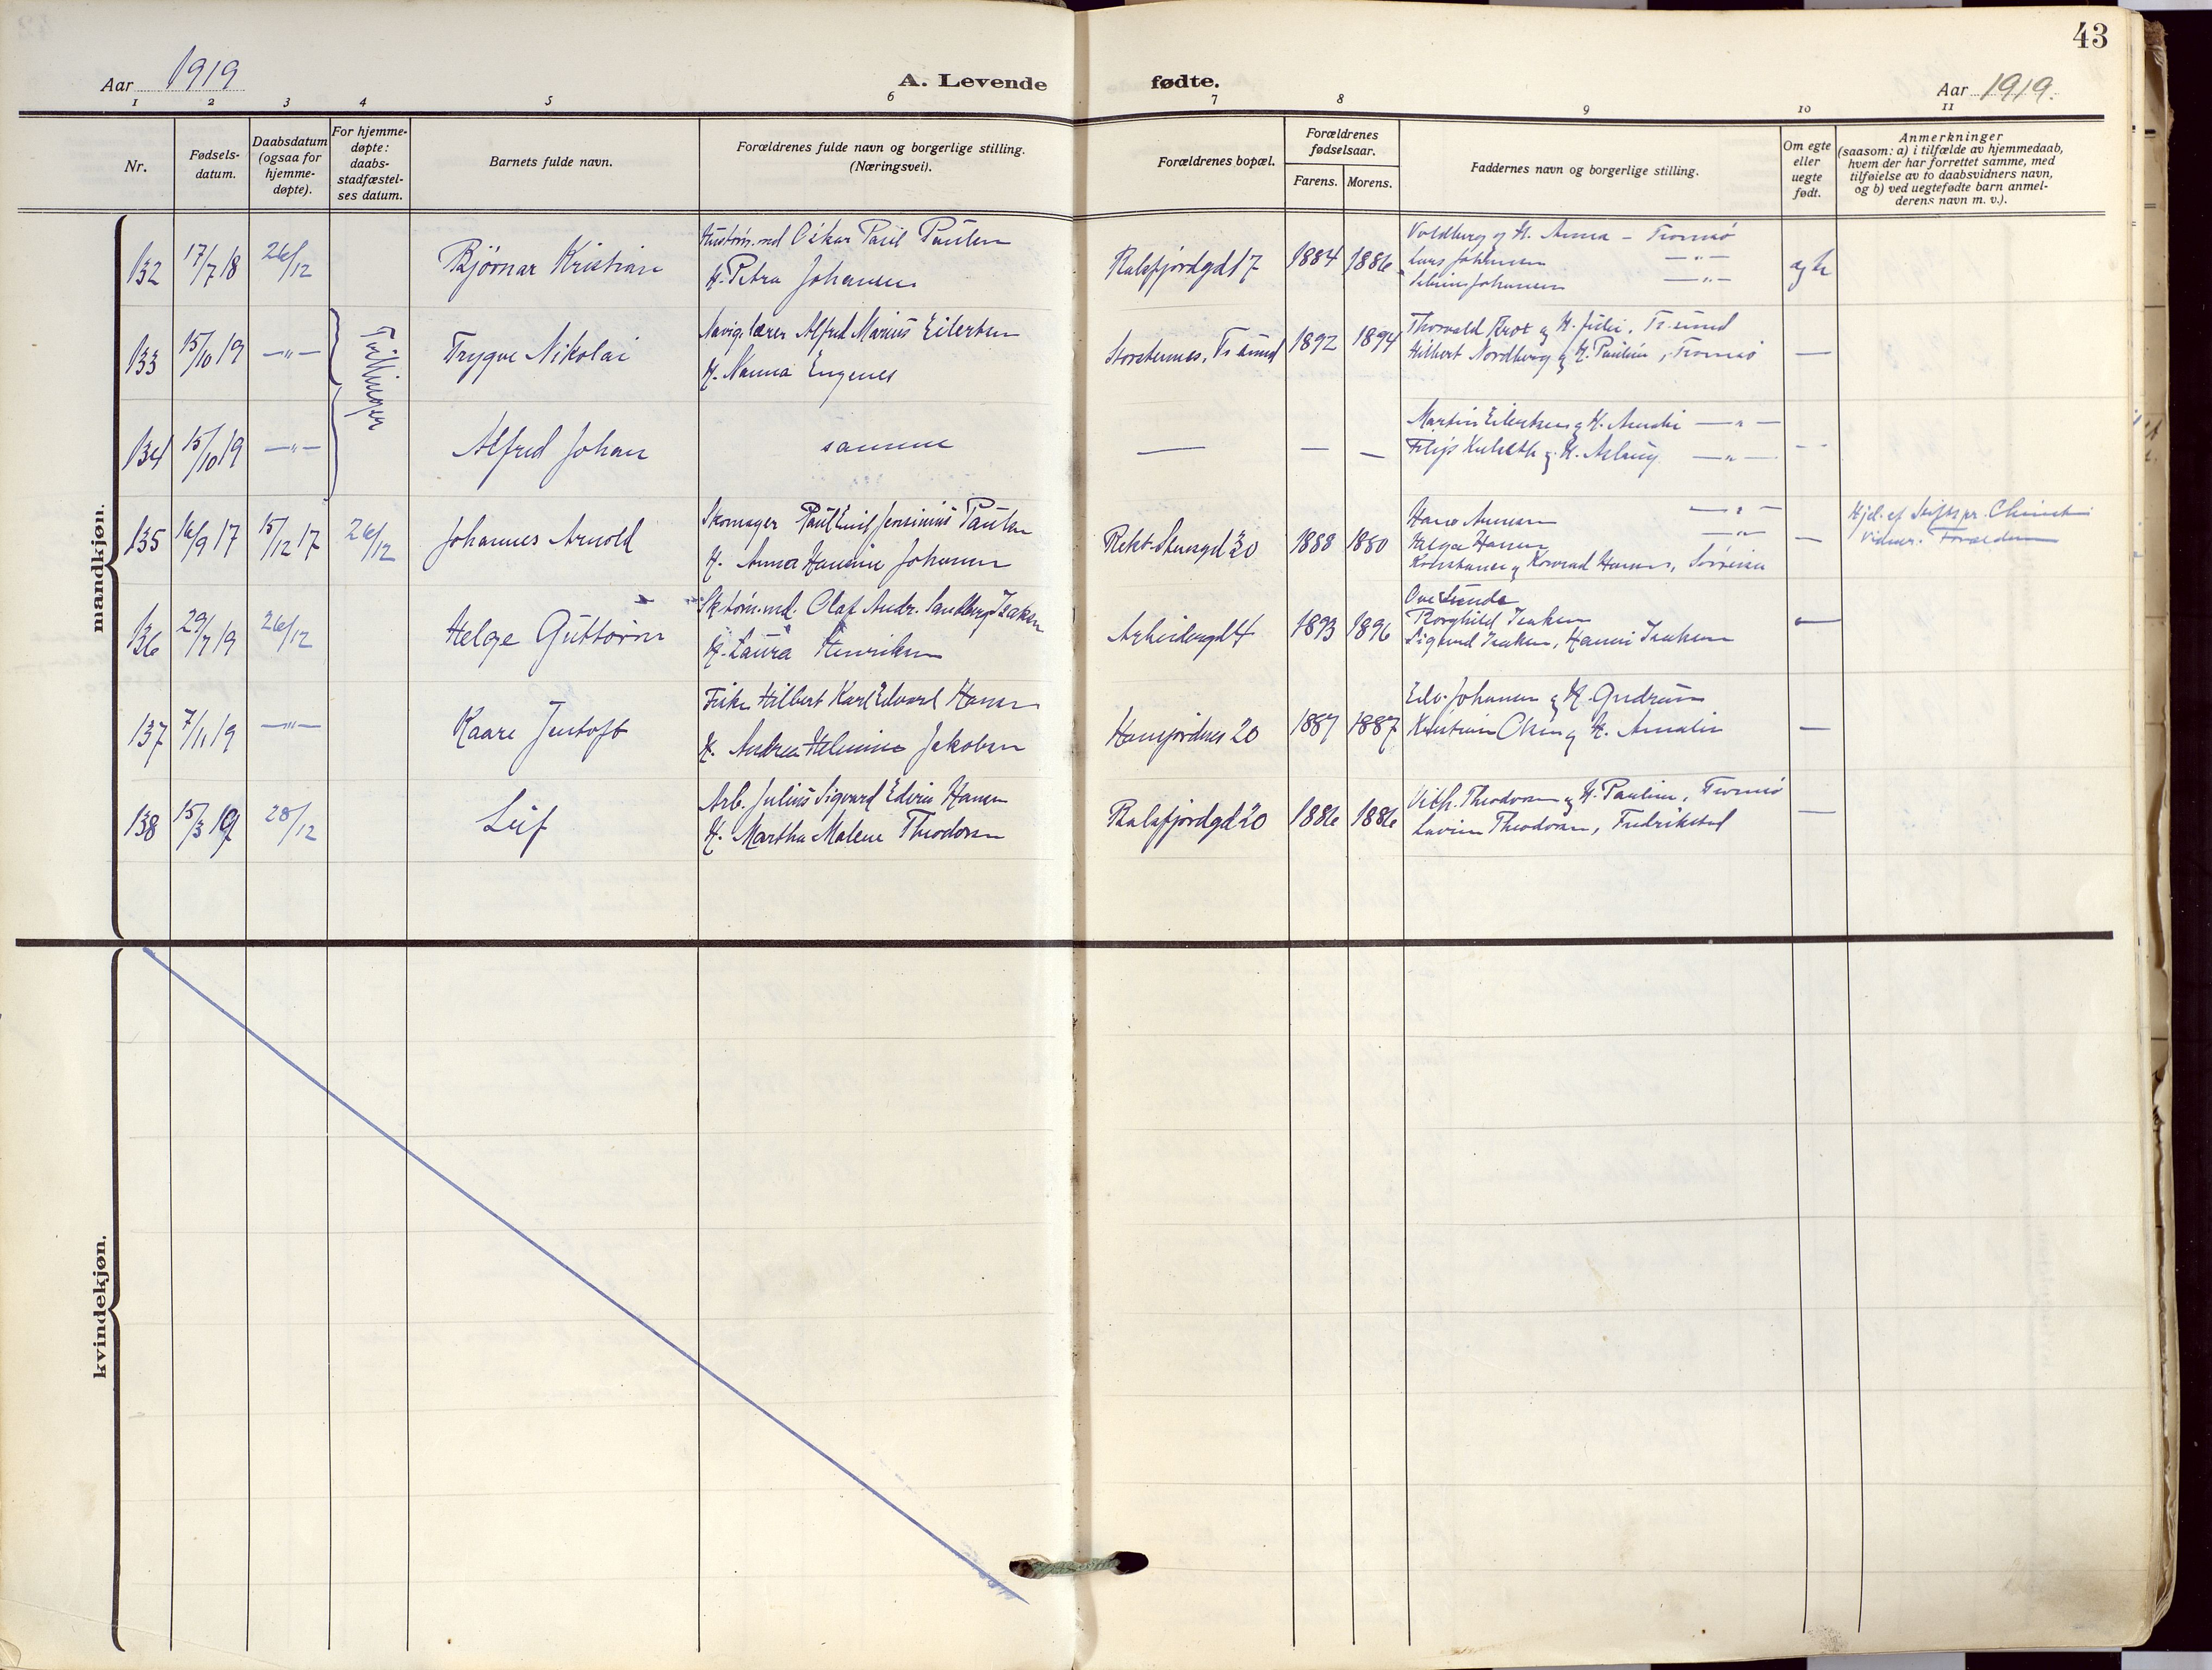 43
Aar 1919
A. Levende fødte.
Aar 1919.
1 2 3 4 5 6 7 8 9 10 11
Nr.
Fødsels-
datum.
Daabsdatum
(ogsaa for
hjemme-
døpte).
For hjemme-
døpte:
daabs-
stadfæstel-
ses datum.
Barnets fulde navn.
Forældrenes fulde navn og borgerlige stilling.
(Næringsvei).
Forældrenes bopæl.
Forældrenes
fødselsaar.
Farens. Morens.
Faddernes navn og borgerlige stilling.
Om egte
eller
uegte
født.
Anmerkninger
(saasom: a) i tilfælde av hjemmedaab,
hvem der har forrettet samme, med
tilføielse av to daabsvidners navn,
og b) ved uegtefødte barn anmel-
derens navn m. v.).
mandkjøn.
132 17/7 18 26/12 Bjørnar Kristian
Oskar Paul Paulsen
H. Petra Johansen
Balsfjordgd 17 1884 1886
Voldberg og H. Anna - Tromsø
Lars Johansen -"-
Johansen -"-
egte
Tvillinger
133 15/10 19 -"- Trygve Nikolai
Navig.lærer Alfred Marius Eilertsen
H. Nanna Engenes
Storstennes, Tr.sund 1892 1894
Thorvald H. Julie, Tr.sund
Hilbert Nordberg og H. Pauline, Tromsø
—
134 15/10 19 -"- Alfred Johan
samme
— — —
Martin Eilertsen og H. -"-
Filip og H. Aslaug -"-
—
135 16/9 17 15/12 17 26/12 Johannes Arnold
Skomager Paul Emil Jensinius Paulsen
H. Anna Hansine Johansen
Rekt. Steengd 30 1888 1880
Hans -"-
Helga Hansen -"-
Konstanse og Konrad Hansen, Sørreisa
—
Hjd. af
Vidner: Forældrene
136 29/7 19 26/12 Helge Guttorm
Olaf Andr. Sandberg Isaksen
H. Laura Henriksen
Arbeidergd 4 1893 1896
Ove
Borghild Isaksen
Sigurd Isaksen, Hanni Isaksen
—
137 7/11 19 -"- Kaare Jentoft
Fisker Hilbert Karl Edvard Hansen
H. Andrea Helmine Jakobsen
Hansjordnes 20 1887 1887
Edv. Johansen og H. Gudrun
Kristian Olsen og H. Amalie
—
138 15/3 19 28/12 Leif
Arb. Julius Sigvard Edvin Hansen
H. Martha Malene Theodorsen
Balsfjordgd 20 1886 1886
Vilh. Theodorsen og H. Pauline, Tromsø
Theodorsen, Fredrikstad
—
kvindekjøn.